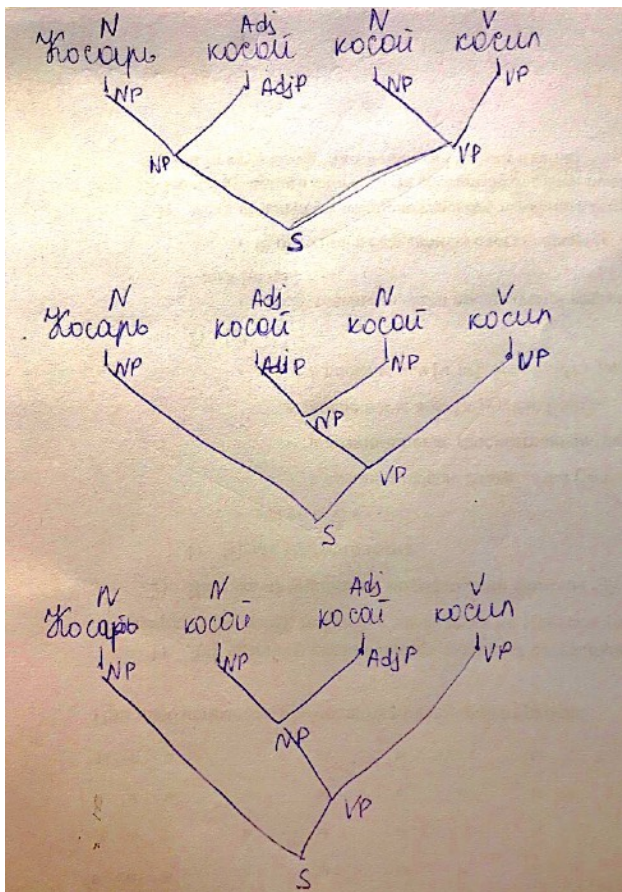 N Adj N V
Косарь косой косой косил
NP AdjP NP VP
NP VP
S
N Adj N V
Косарь косой косой косил
NP AdjP NP VP
NP
VP
S
N N Adj V
Косарь косой косой косил
NP NP AdjP VP
NP
VP
S